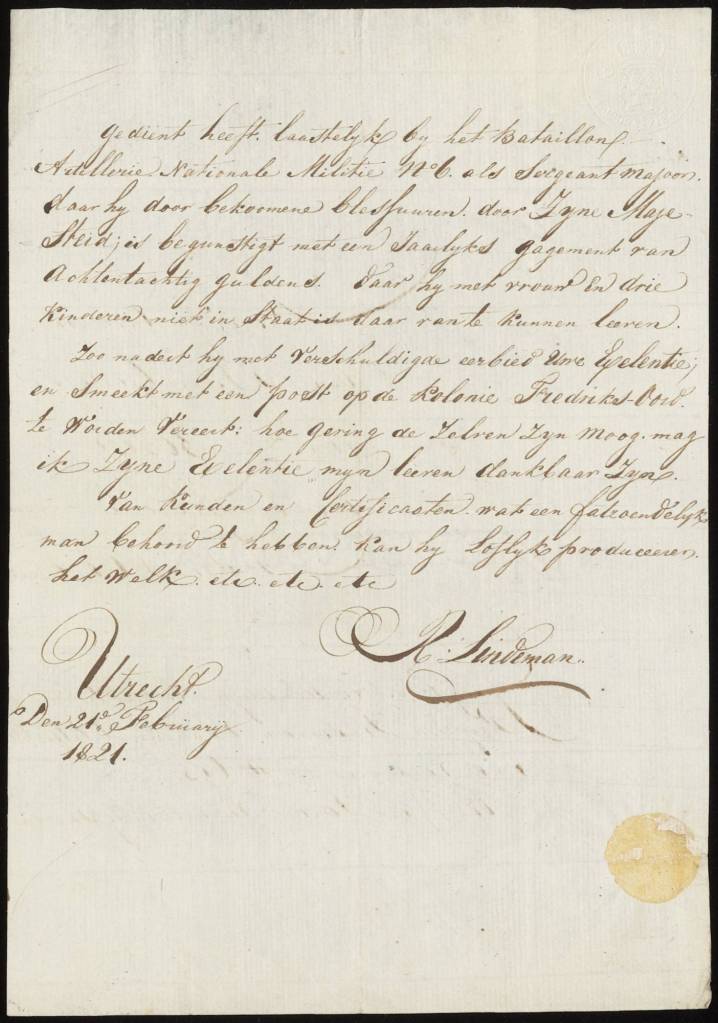 gedient heeft. laastelyk by het Bataillon.
Artellerie Nationale Militie N° 6. als Sergeant Majoor.
daar hy door bekoomene blessuuren. door Zyne Maje-
steid; is begunstigt met een Jaarlyks gagement van
Achtentachtig guldens. daar hy met vrouw En drie
kinderen niet in Staat is daar van te kunnen leeven.
Zoo nadert hy met Verschuldigde eerbied Uwe Exelentie;
en Smeekt met een post op de Kolonie Fredriks-Oord.
te Worden Vereert: hoe gering de Zelven Zyn Moog. mag
ik Zyne Exelentie myn leeven dankbaar Zyn.
Van Kunden en Certificaaten. wat een fatzoendelyk
man behoord te hebben kan hy Loflyk produceeren.
het Welk. etc. etc. etc
R. Lindeman.
Utrecht.
Den 21e. Februarij
1821.